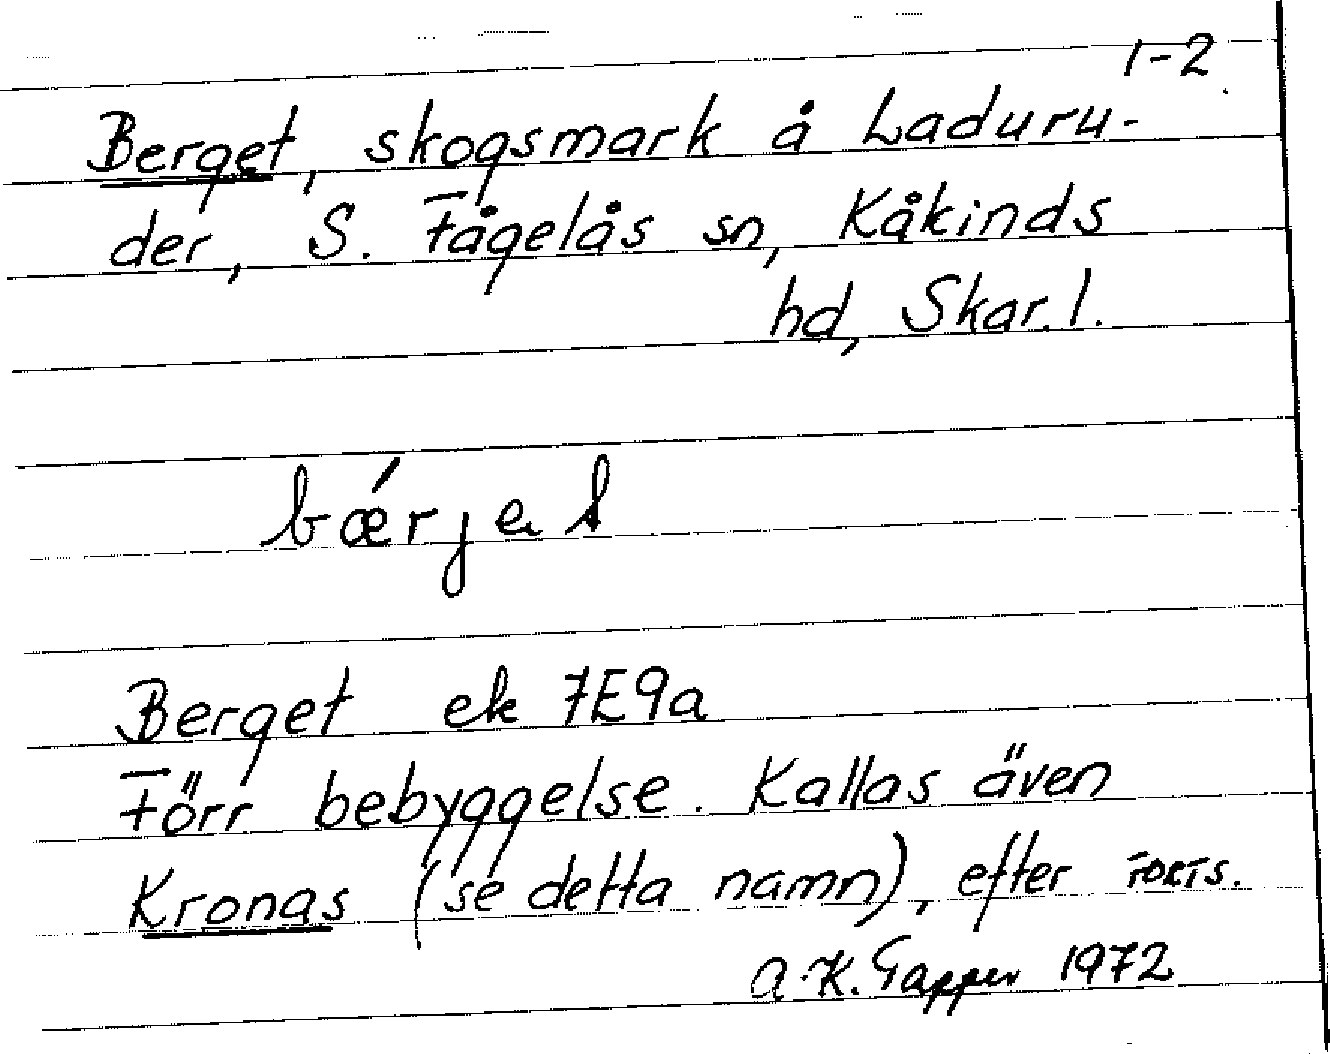 1-2
Berget, skogsmark å Laduru-
der, S. Fågelås sn, Kåkinds
hd, Skar. l.
bǽrjet
Berget ek 7E9a
Förr bebyggelse. Kallas även
Kronas (se detta namn), efter FORTS.
A-K. Tapper 1972